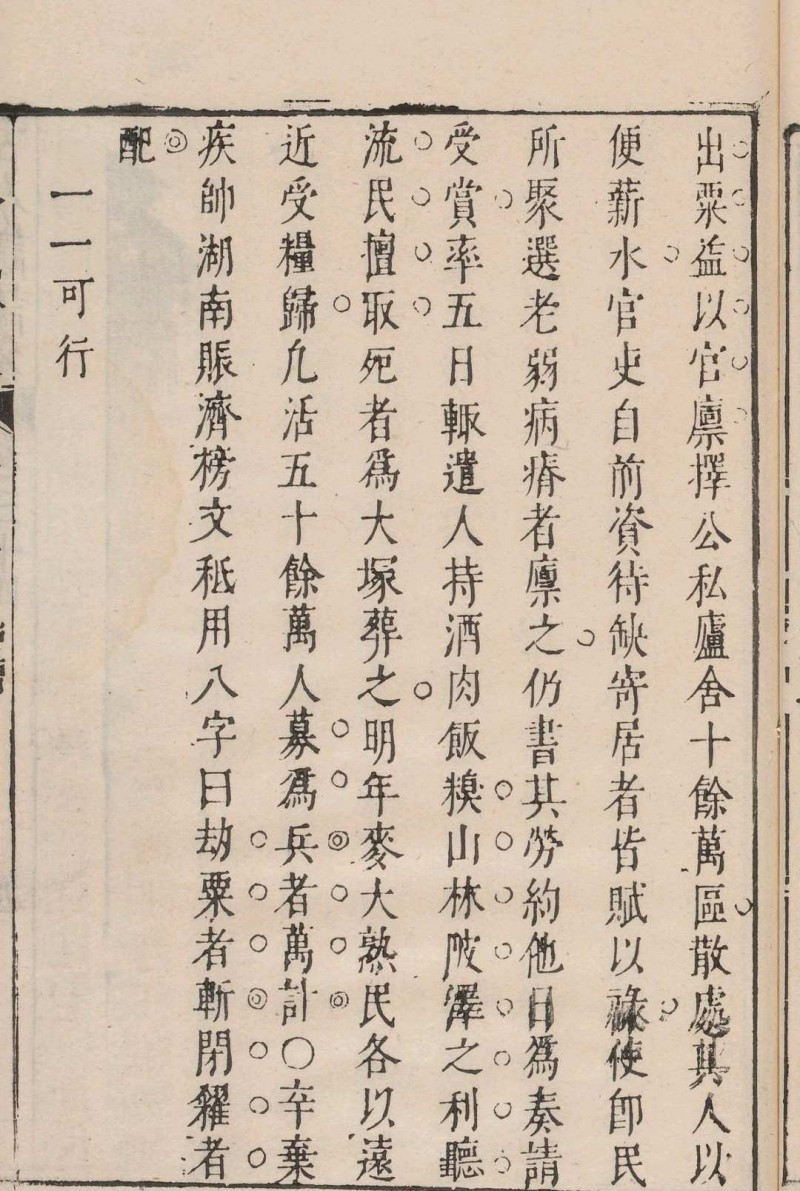 出粟益以官廪擇公私廬舍十餘萬區散處其人以
便薪水官吏自前資待缺寄居者皆賦以祿使即民
所聚選老弱病瘠者廪之仍書其勞約他日爲奏請
受賞率五日輒遣人持酒肉飯糗山林陂澤之利聽
流民擅取死者爲大塚葬之明年麥大熟民各以遠
近受糧歸凢活五十餘萬人募爲兵者萬計〇辛棄
疾帥湖南賑濟榜文秪用八字曰劫粟者斬閉糴者
配
一一可行